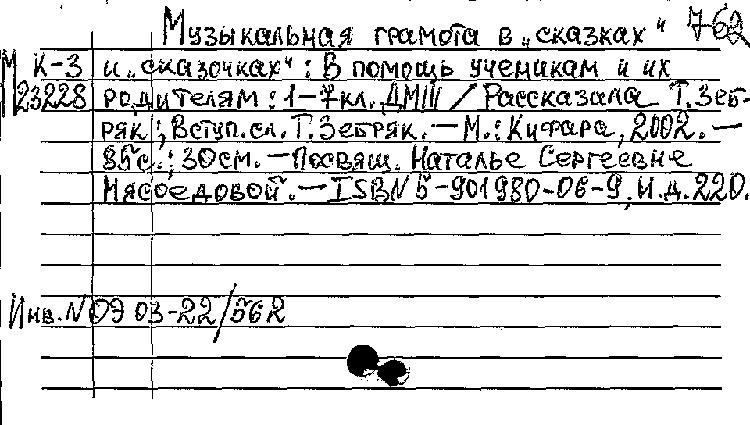 Музыкальная грамота в „сказках" 762
М К-3 и „сказочках": В помощь ученикам и их
23228 родителям: 1-7 кл. ДМШ / Рассказала Т. Зеб-
ряк; Вступ. сл. Т. Зебряк. — М.: Кифара, 2002. —
85 с.; 30 см. — Посвящ. Наталье Сергеевне
Мясоедовой. — ISBN 5-901980-06-9, И.д. 220.
Инв. N ОЭ 03-22/562